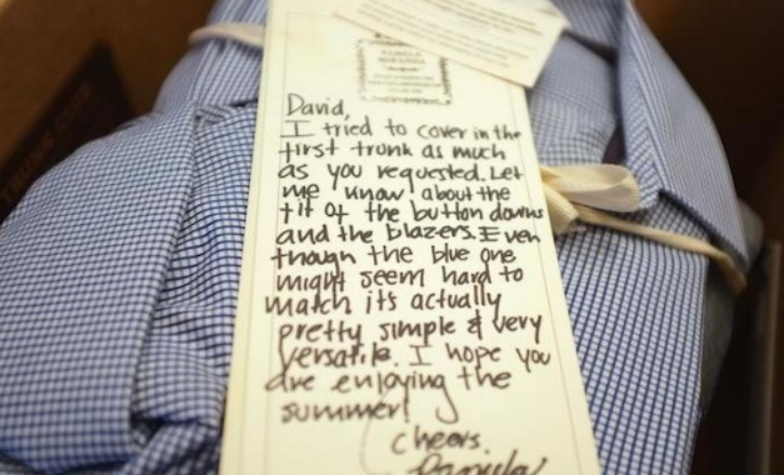 PAMELA
MIRANDA
David,
I tried to cover in the
first trunk as much
as you requested. Let
me know about the
fit of the button downs
and the blazers. Even
though the blue one
might seem hard to
match its actually
pretty simple & very
versatile. I hope you
are enjoying the
summer!
Cheers,
TRUNK CLUB